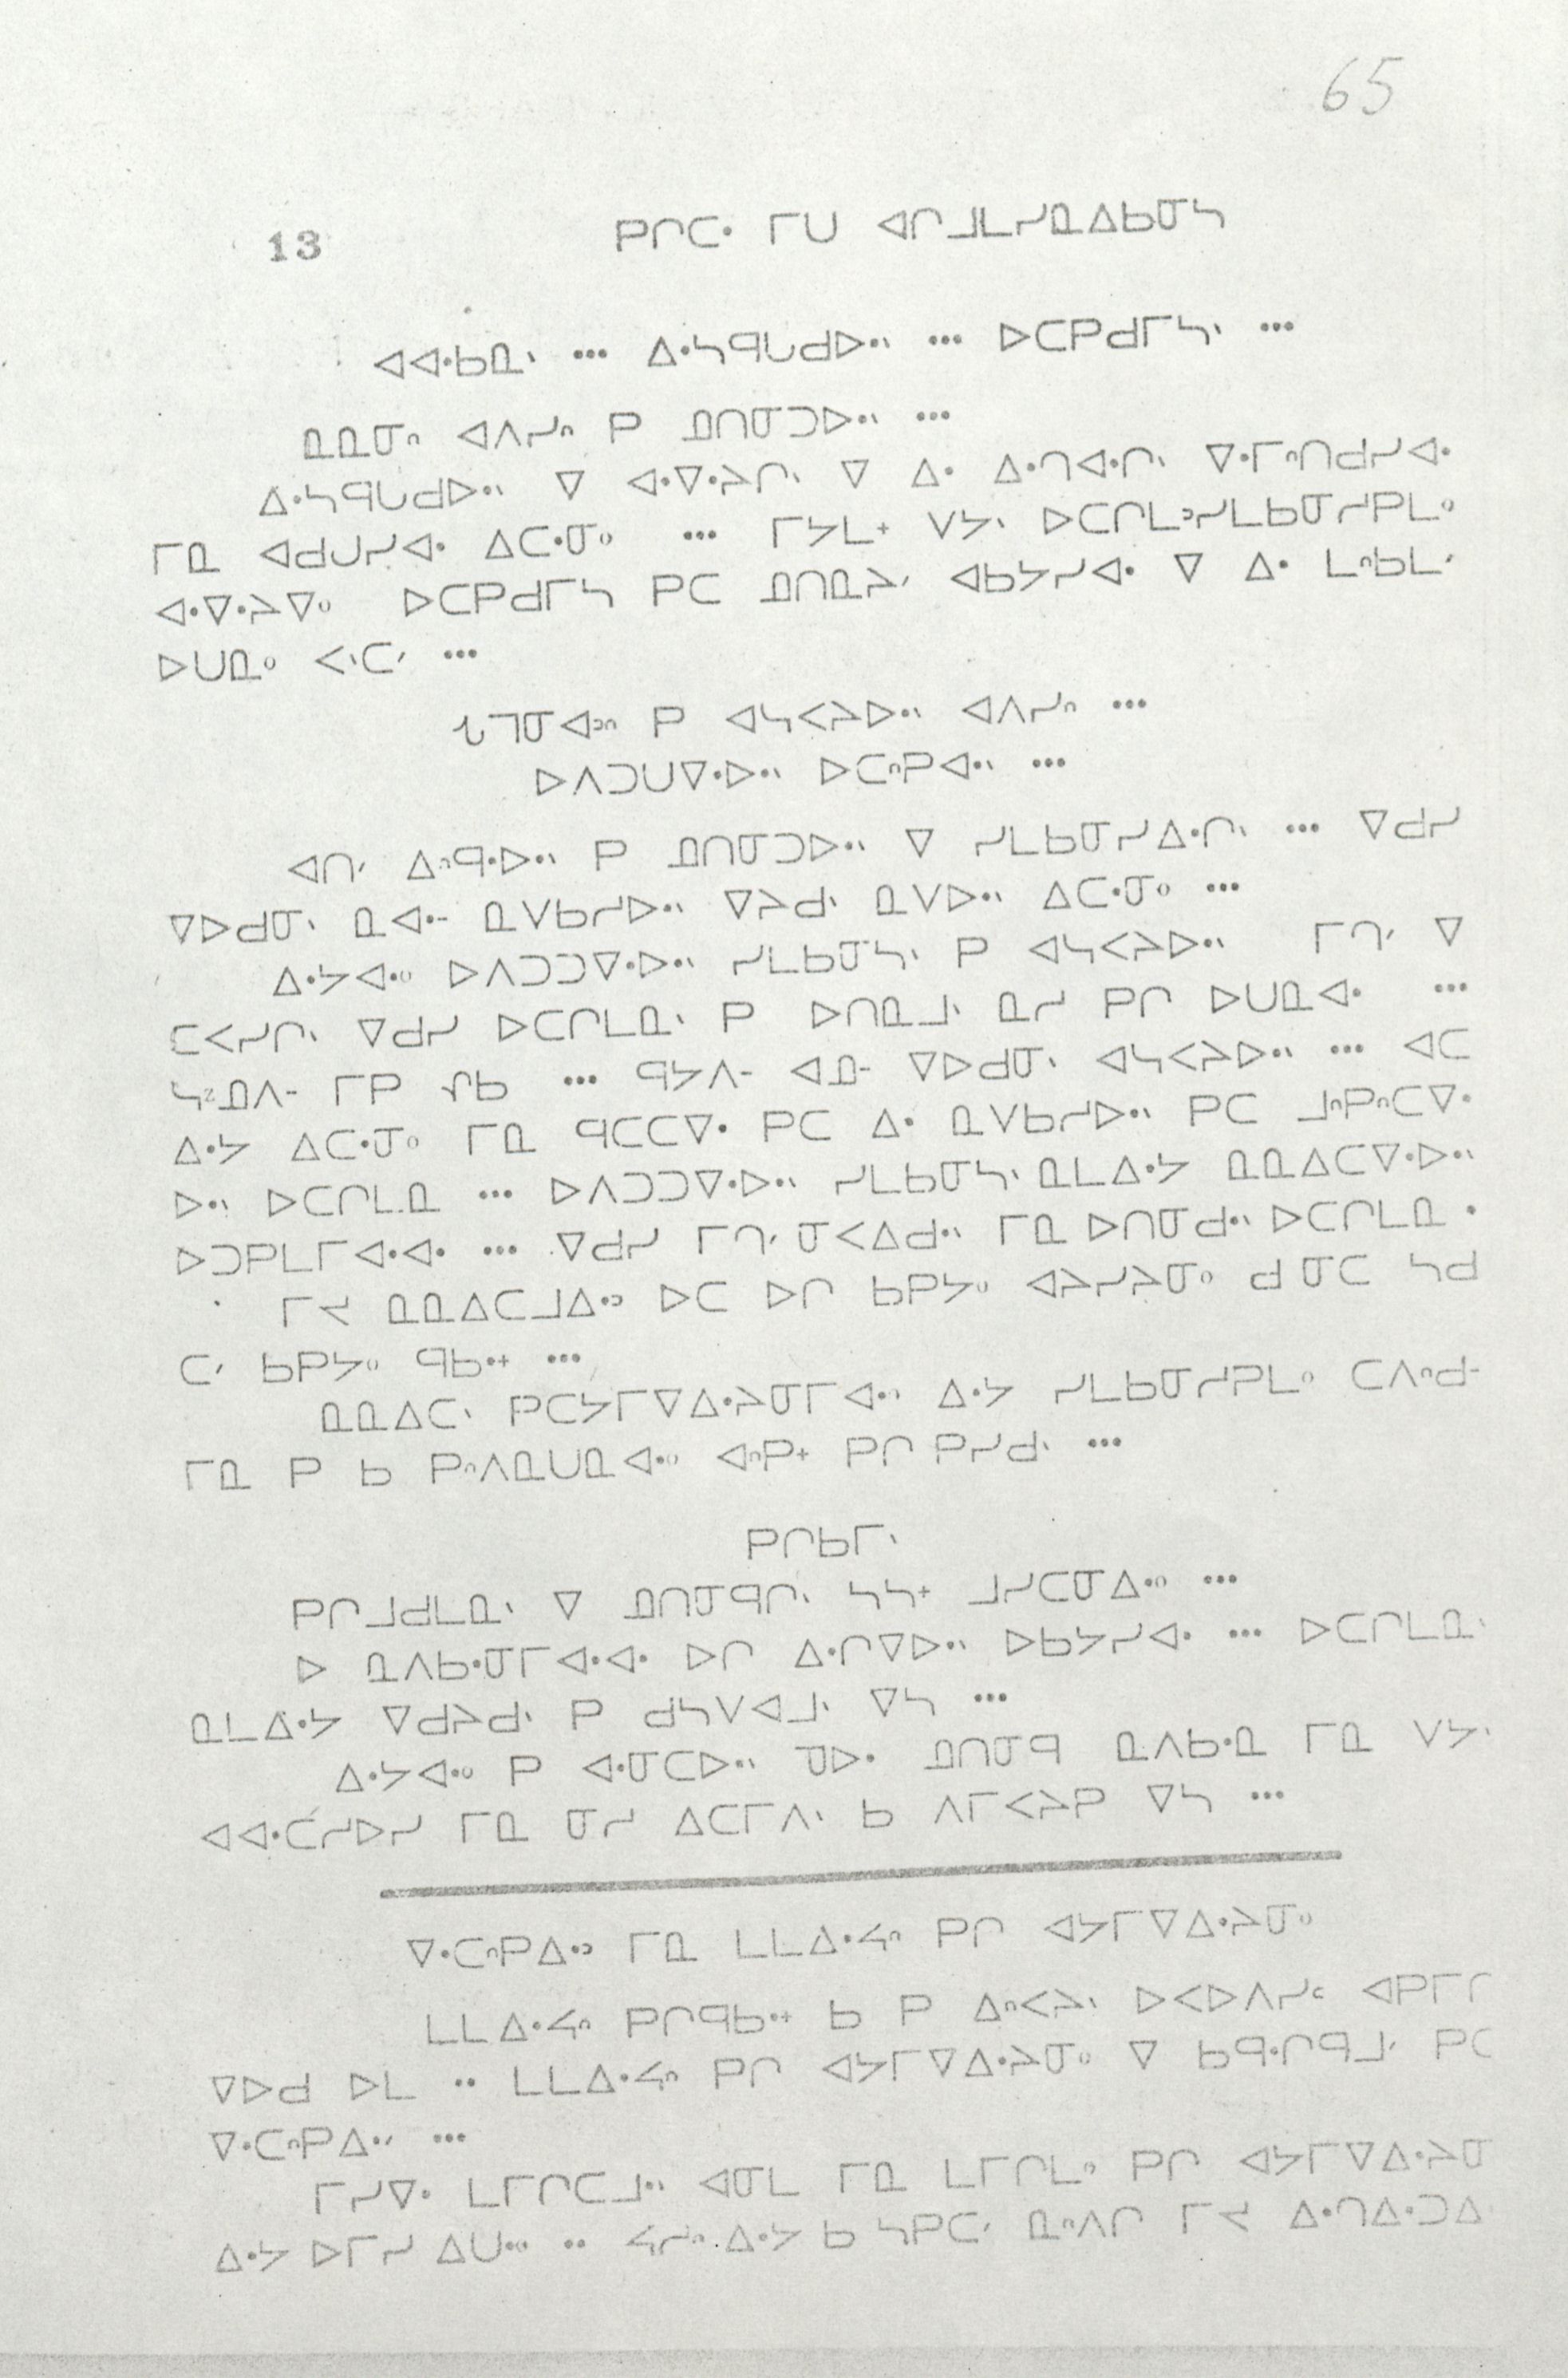 65
13 ᑭᒋᑕᐧ ᒥᑌ ᐊᒋᒧᒪᓯᓇᐃᑲᓂᓴ
ᐊᐊᐧᑲᓇᐠ ... ᐃᐧᓴᑫᑌᑯᐅᐧᐠ ... ᐅᑕᑭᑯᒥᓴᐠ ...
ᓇᓇᓂᐢ ᐊᐱᓯᐢ ᑭ ᓄᑎᓂᑐᐅᐧᐠ ...
ᐃᐧᓴᑫᑌᑯᐅᐧᐠ ᐁ ᐊᐧᐁᐧᔨᒋᐠ ᐁ ᐃᐧ ᐃᐧᒉᐊᐧᒋᐠ ᐁᐧᒥᐢᑎᑯᓯᐊᐧ
ᒥᓇ ᐊᑯᒍᓯᐊᐧ ᐃᑕᐧᓂᐤ ... ᒥᔭᒪᐩ ᐯᔭᐠ ᐅᑕᒋᒪᐣᓯᒪᑲᓂᓯᑭᒪᐤ
ᐊᐧᐁᐧᔨᐁᐤ ᐅᑕᑭᑯᒥᓴ ᑭᑕ ᓄᑎᓇᔨᐟ ᐊᑲᔭᓯᐊᐧ ᐁ ᐃᐧ ᒪᐢᑲᒪᐟ
ᐅᑌᓇᐤ ᐸᐠᑕᐟ ...
ᑭ ᐊᓴᐸᔨᐅᐧᐠ ᐊᐱᓯᐢ ...
ᐅᐱᑐᑌᐁᐧᐅᐧᐠ ᐅᑕᐢᑭᐊᐧᐠ ...
ᐊᑎᐟ ᐃᐢᑫᐧᐅᐧᐠ ᑭ ᓄᑎᓂᑐᐅᐧᐠ ᐁ ᓯᒪᑲᓂᓯᐃᐧᒋᐠ ... ᐁᑯᓯ
ᐁᐅᑯᓂᐠ ᓇᐊᐧᐨ ᓇᐯᑲᓯᐅᐧᐠ ᐁᔨᑯᐠ ᓇᐯᐅᐧᐠ ᐃᑕᐧᓂᐤ ...
ᐃᐧᔭᐊᐧᐤ ᐅᐱᑐᑐᐁᐧᐅᐧᐠ ᓯᒪᑲᓂᓴᐠ ᑭ ᐊᓴᐸᔨᐅᐧᐠ ᒥᒉᐟ ᐁ
ᑕᐸᓯᒋᐠ ᐁᑯᓯ ᐅᑕᒋᒪᓇᐠ ᑭ ᐅᑎᓇᒧᐠ ᓇᓯ ᑭᒋ ᐅᑌᓇᐊᐧ ...
ᒥᑭ ... ᑫᔭᐱᐨ ᐊᓄᐨ ᐁᐅᑯᓂᐠ ᐊᓴᐸᔨᐅᐧᐠ ... ᐊᑕ
ᐃᐧᔭ ᐃᑕᐧᓂᐤ ᒥᓇ ᑫᑕᑕᐁᐧ ᑭᑕ ᐃᐧ ᓇᐯᑲᓯᐅᐧᐠ ᑭᑕ ᒧᐢᑭᐢᑕᐁᐧ
ᐅᐧᐠ ᐅᑕᒋᒪᓇ ... ᐅᐱᑐᑐᐁᐧᐅᐧᐠ ᓯᒪᑲᓂᓴᐠ ᓇᒪᐃᐧᔭ ᓇᓇᐃᑕᐁᐧᐅᐧᐠ
ᐅᑐᑭᒪᒥᐊᐧᐊᐧ ... ᐁᑯᓯ ᒥᒉᐟ ᓂᐸᐃᑯᐧᐠ ᒥᓇ ᐅᑎᓂᑯᐧᐠ ᐅᑕᒋᒪᓇ ᐧ
ᒥᔪ ᓇᓇᐃᑕᒧᐃᐧᐣ ᐅᑕ ᐅᒋ ᑲᑭᔭᐤ ᐊᔨᓯᔨᓂᐤ ᑯ ᓂᑕ ᓴᑯ
ᑕᐟ ᑲᑭᔭᐤ ᑫᑲᐧᐩ ...
ᓇᓇᐃᑕᐠ ᑭᑕᔭᒥᐁᐃᐧᔨᓂᒥᐊᐧᐤ ᐃᐧᔭ ᓯᒪᑲᓂᓯᑭᒪᐤ ᑕᐱᐢᑯᐨ
ᒥᓇ ᑭ ᑲ ᑭᐢᐱᓇᑌᓇᐊᐧᐤ ᐊᐢᑭᐩ ᑭᒋ ᑭᓯᑯᐠ ...
ᑭᒋᑲᒥᐠ
ᑭᒋᒧᑯᒪᓇᐠ ᐁ ᓄᑎᓂᑫᒋᐠ ᓴᓴᐩ ᒧᓯᑕᓂᐃᐧᐤ ...
ᐅ ᓇᐱᑲᐧᓂᒥᐊᐧᐊᐧ ᐅᒋ ᐃᐧᒋᐁᐅᐧᐠ ᐅᑲᔭᓯᐊᐧ ... ᐅᑕᒋᒪᓇᐠ
ᓇᒪᐃᐧᔭ ᐁᑯᔨᑯᐠ ᑭ ᑯᓴᐯᐊᒧᐠ ᐁᓴ ...
ᐃᐧᔭᐊᐧᐤ ᑭ ᐊᐧᓂᑕᐅᐧᐠ ᓀᐅᐧ ᓄᑎᓂᑫ ᓇᐱᑲᐧᓇ ᒥᓇ ᐯᔭᐠ
ᐊᐊᐧᑕᓯᐅᓯ ᒥᓇ ᓂᓯ ᐃᑕᒥᐱᐠ ᑲ ᐱᒥᐸᔨᑭ ᐁᓴ ...
ᐁᐧᑕᐢᑭᐃᐧᐣ ᒥᓇ ᒪᒪᐃᐧᔦᐢ ᑭᒋ ᐊᔭᒥᐁᐃᐧᔨᓂᐤ
ᒪᒪᐃᐧᔦᐢ ᑭᒋᑫᑲᐧᐩ ᑲ ᑭ ᐃᐢᐸᔨᐠ ᐅᐸᐅᐱᓯᒼ ᐊᑭᒥᒋ
ᐁᐅᑯ ᐅᒪ .. ᒪᒪᐃᐧᔦᐢ ᑭᒋ ᐊᔭᒥᐁᐃᐧᔨᓂᐤ ᐁ ᑲᑫᐧᒋᑫᒧᐟ ᑭᑕ
ᐁᐧᑕᐢᑭᐃᐧᐟ ...
ᒥᓯᐁᐧ ᒪᒥᒋᑕᒧᐧᐠ ᐊᓂᒪ ᒥᓇ ᒪᒥᒋᒪᐤ ᑭᒋ ᐊᔭᒥᐁᐃᐧᔨᓂ
ᐃᐧᔭ ᐅᒥᓯ ᐃᑌᐧᐤ .. ᐃᐧᔭ ᑲ ᓴᑭᑕᐟ ᓇᐢᐱᒋ ᒥᔪ ᐃᐧᒉᐃᐧᑐᐃ